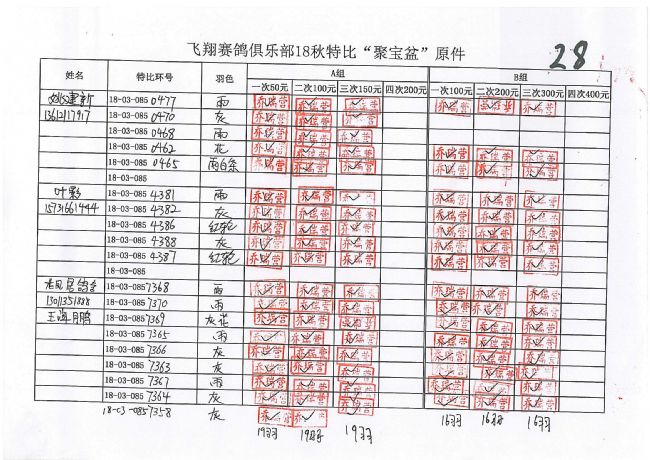 飞翔赛鸽俱乐部18秋特比“聚宝盆”原件
28
姓名 特比环号 羽色 A组 B组
一次50元 二次100元 三次150元 四次200元 一次100元 二次200元 三次300元 四次400元
建新 18-03-085 0477 雨 乔瑞营 乔瑞营 乔瑞营 乔瑞营 乔瑞营 乔瑞营
13612117917 18-03-085 0470 灰 乔瑞营 乔瑞营 乔瑞营
18-03-085 0468 雨 乔瑞营 乔瑞营 乔瑞营
18-03-085 0462 花 乔瑞营 乔瑞营 乔瑞营 乔瑞营 乔瑞营 乔瑞营
18-03-085 0465 雨白条 乔瑞营 乔瑞营 乔瑞营 乔瑞营 乔瑞营 乔瑞营
18-03-085
叶彩 18-03-085 4381 雨 乔瑞营 乔瑞营 乔瑞营 乔瑞营 乔瑞营 乔瑞营
15731661444 18-03-085 4382 灰 乔瑞营 乔瑞营 乔瑞营 乔瑞营 乔瑞营 乔瑞营
18-03-085 4386 红轮 乔瑞营 乔瑞营 乔瑞营 乔瑞营 乔瑞营 乔瑞营
18-03-085 4388 灰 乔瑞营 乔瑞营 乔瑞营 乔瑞营 乔瑞营 乔瑞营
18-03-085 4387 红轮 乔瑞营 乔瑞营 乔瑞营 乔瑞营 乔瑞营 乔瑞营
18-03-085
居鸽舍 18-03-085 7368 雨 乔瑞营 乔瑞营 乔瑞营 乔瑞营 乔瑞营 乔瑞营
13011351888 18-03-085 7370 雨 乔瑞营 乔瑞营 乔瑞营 乔瑞营 乔瑞营 乔瑞营
王海月鹏 18-03-085 7369 灰花 乔瑞营 乔瑞营 乔瑞营 乔瑞营 乔瑞营 乔瑞营
18-03-085 7365 雨 乔瑞营 乔瑞营 乔瑞营 乔瑞营 乔瑞营 乔瑞营
18-03-085 7366 灰 乔瑞营 乔瑞营 乔瑞营 乔瑞营 乔瑞营 乔瑞营
18-03-085 7363 灰 乔瑞营 乔瑞营 乔瑞营 乔瑞营 乔瑞营 乔瑞营
18-03-085 7367 雨 乔瑞营 乔瑞营 乔瑞营 乔瑞营 乔瑞营 乔瑞营
18-03-085 7364 灰 乔瑞营 乔瑞营 乔瑞营 乔瑞营 乔瑞营 乔瑞营
18-03-085 7358 灰 乔瑞营 乔瑞营
19羽 19羽 19羽 16羽 16羽 16羽